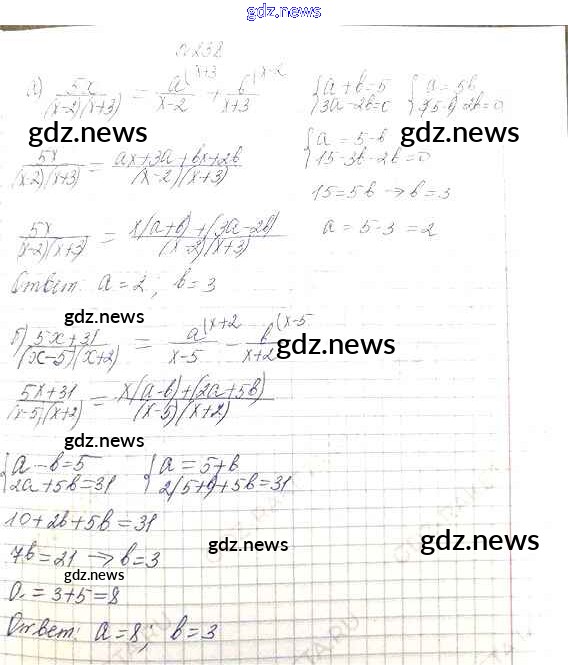 gdz.news
№238
а) 5x/((x-2)(x+3)) = a(x+3/(x-2) + b(x-2/(x+3)
{a+b=5 {a=5-b
{3a-2b=0 {3(5-b)-2b=0
gdz.news gdz.news
5x/((x-2)(x+3)) = (ax+3a+bx+2b)/((x-2)(x+3))
{a=5-b
{15-3b-2b=0
15=5b → b=3
5x/((x-2)(x+3)) = (x(a+b)+(3a-2b))/((x-2)(x+3))
a=5-3=2
Ответ: a=2; b=3
gdz.news
б) (5x+31)/((x-5)(x+2)) = a(x+2/(x-5) - b(x-5/(x+2)
gdz.news
(5x+31)/((x-5)(x+2)) = (x(a-b)+(2a+5b))/((x-5)(x+2))
gdz.news
{a-b=5 {a=5+b
{2a+5b=31 {2(5+b)+5b=31
10+2b+5b=31
gdz.news gdz.news
7b=21 → b=3
gdz.news
a=3+5=8
Ответ: a=8; b=3